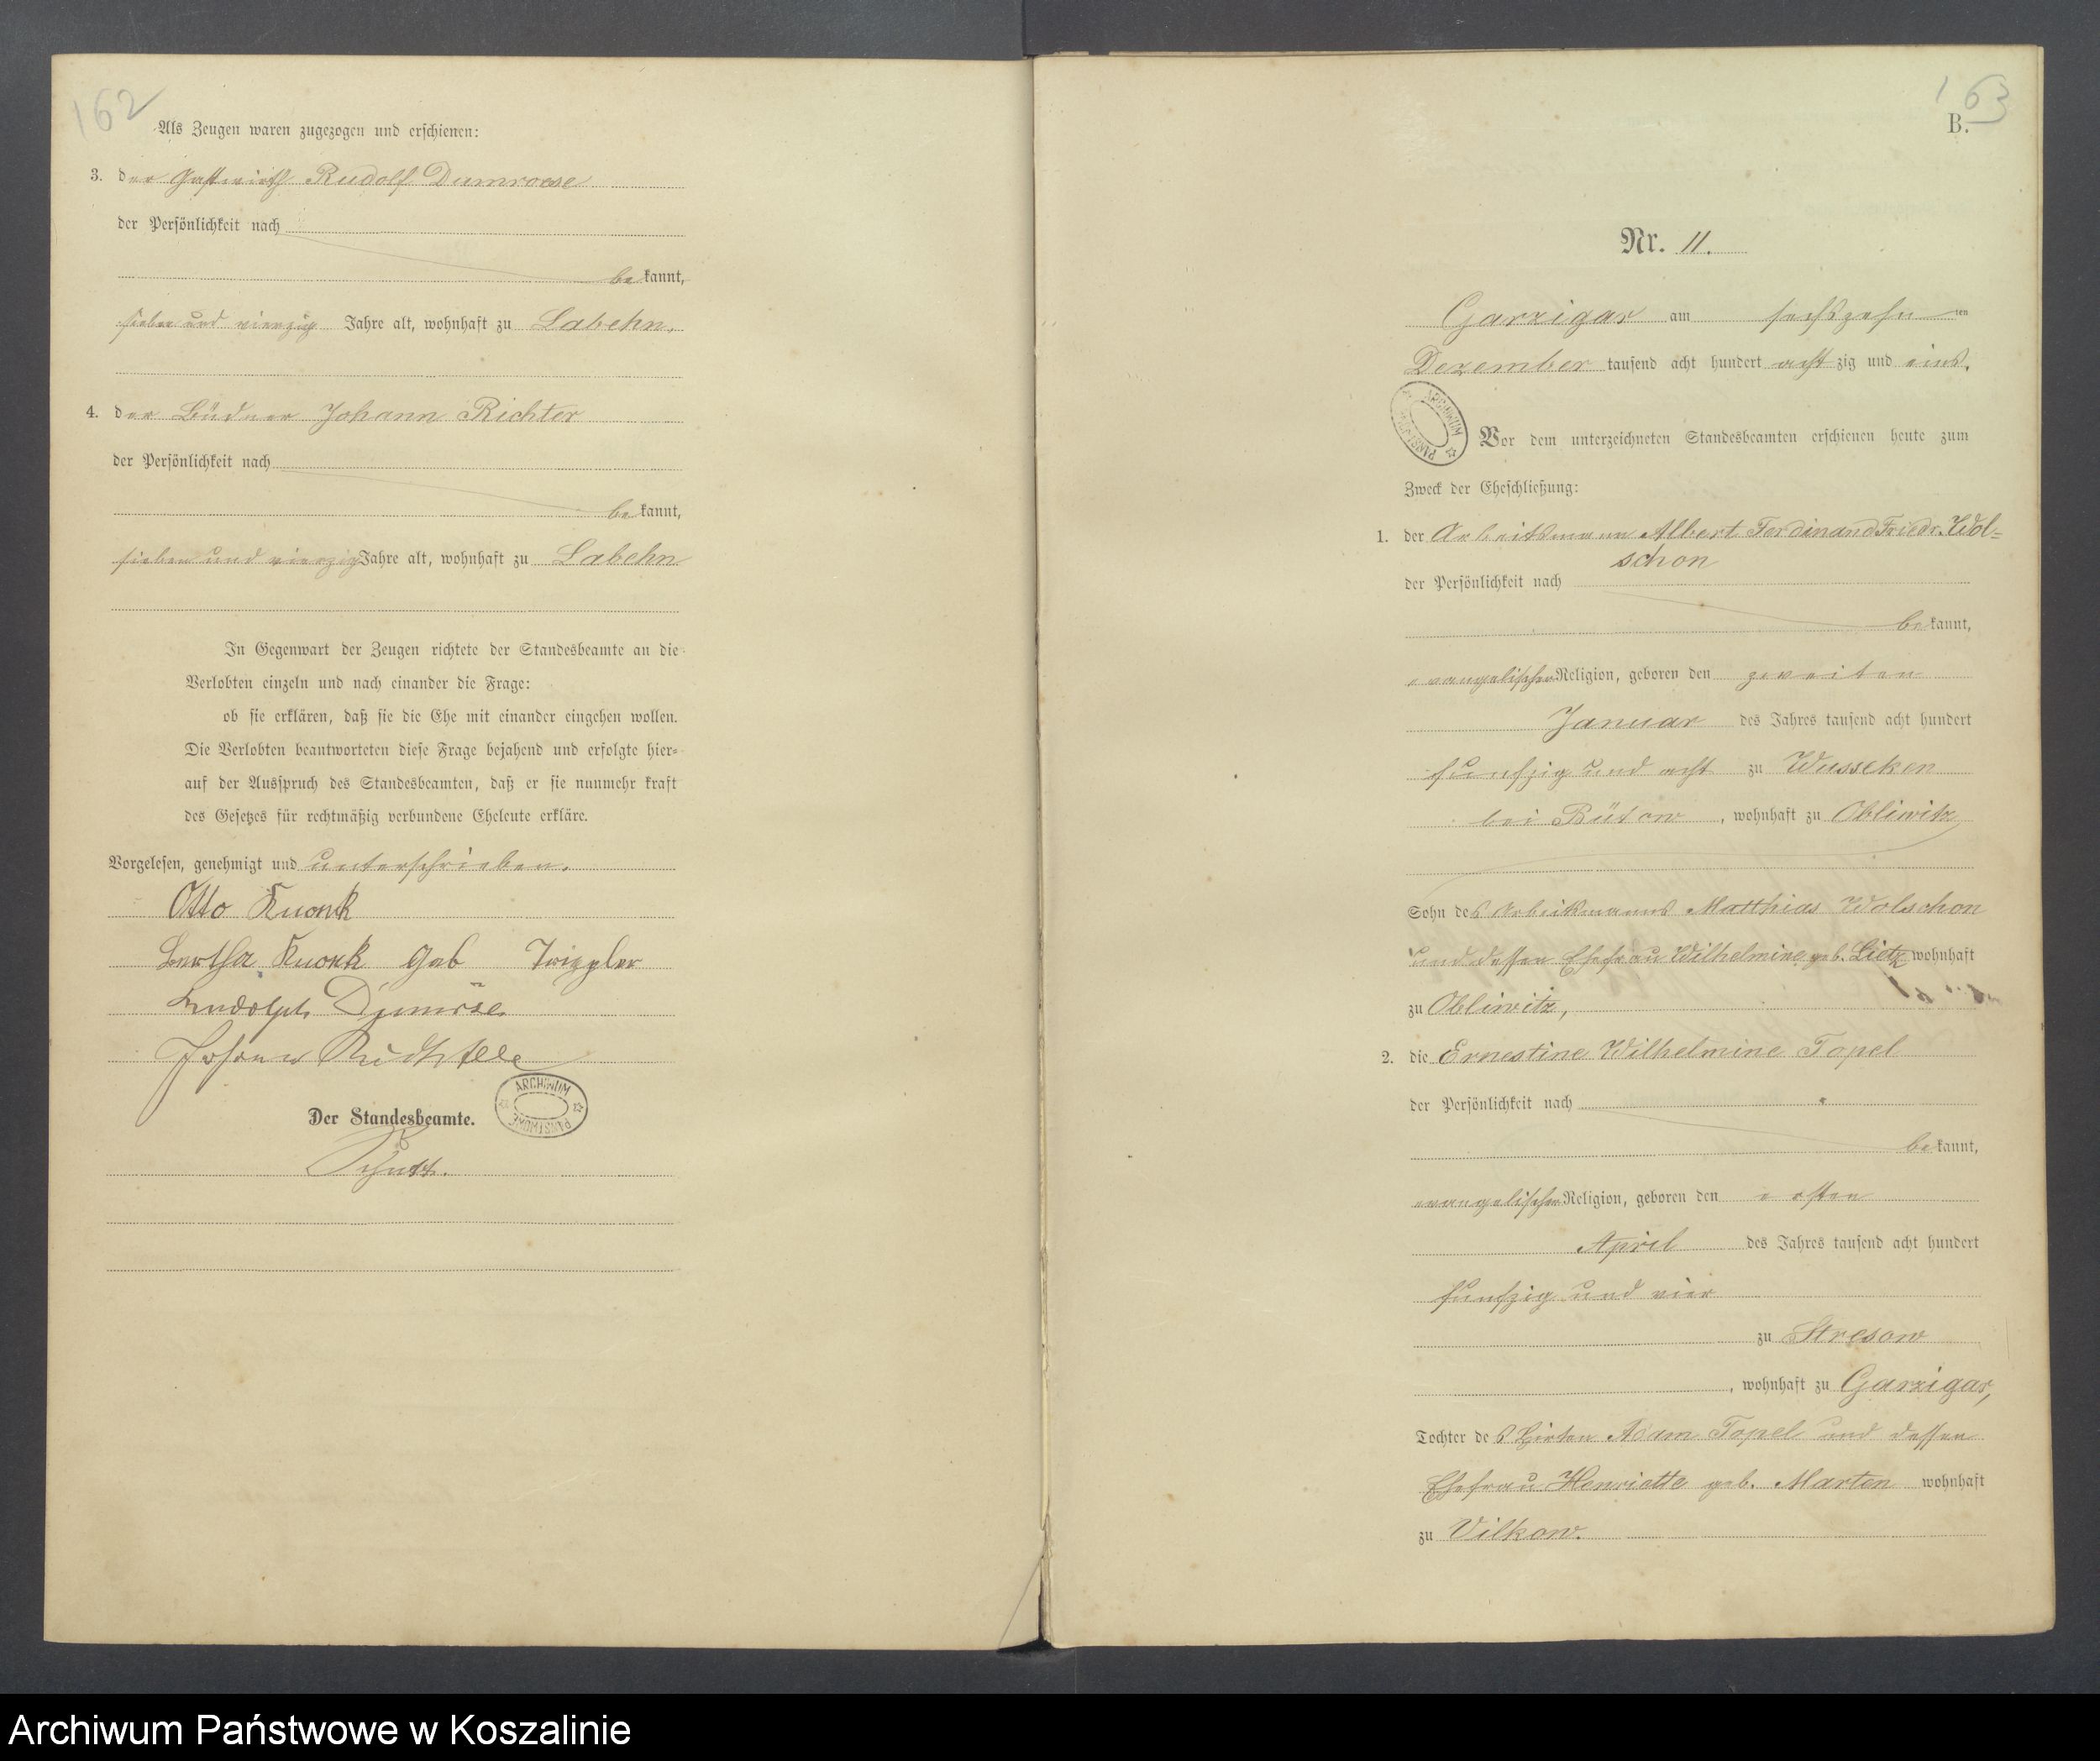 162
Als Zeugen waren zugezogen und erschienen:
3. der Gastwirth Rudolf Damroese
der Persönlichkeit nach
be kannt,
sieben und vierzig Jahre alt, wohnhaft zu Labehn.
4. der Büdner Johann Richter
der Persönlichkeit nach
be kannt,
sieben und vierzig Jahre alt, wohnhaft zu Labehn
In Gegenwart der Zeugen richtete der Standesbeamte an die
Verlobten einzeln und nach einander die Frage:
ob sie erklären, daß sie die Ehe mit einander eingehen wollen.
Die Verlobten beantworteten diese Frage bejahend und erfolgte hier-
auf der Ausspruch des Standesbeamten, daß er sie nunmehr kraft
des Gesetzes für rechtmäßig verbundene Eheleute erkläre.
Vorgelesen, genehmigt und unterschrieben.
Otto Kuonk
Bertha Kuonk geb
Rudolph
Johann
Der Standesbeamte.
ARCHIWUM PAŃSTWOWE
163
B.
Nr. 11.
Garzigar am sechszehn ten
Dezember tausend acht hundert acht zig und eins.
ARCHIWUM PAŃSTWOWE
Vor dem unterzeichneten Standesbeamten erschienen heute zum
Zweck der Eheschließung:
1. der Arbeitsmann Albert Ferdinand Friedr. Wol=
schon
der Persönlichkeit nach
be kannt,
evangelischer Religion, geboren den zweiten
Januar des Jahres tausend acht hundert
funfzig und acht zu Wusseken
bei Bütow, wohnhaft zu Obliwitz
Sohn des Arbeitsmanns Matthias Wolschon
und dessen Ehefrau Wilhelmine geb. Lietz wohnhaft
zu Obliwitz,
2. die Ernestine Wilhelmine Topel
der Persönlichkeit nach
be kannt,
evangelischer Religion, geboren den ersten
April des Jahres tausend acht hundert
funfzig und vier
zu Stresow
, wohnhaft zu Garzigar,
Tochter des Hirten Adam Topel und dessen
Ehefrau Henriette geb. Marten wohnhaft
zu Vilkow.
Archiwum Państwowe w Koszalinie